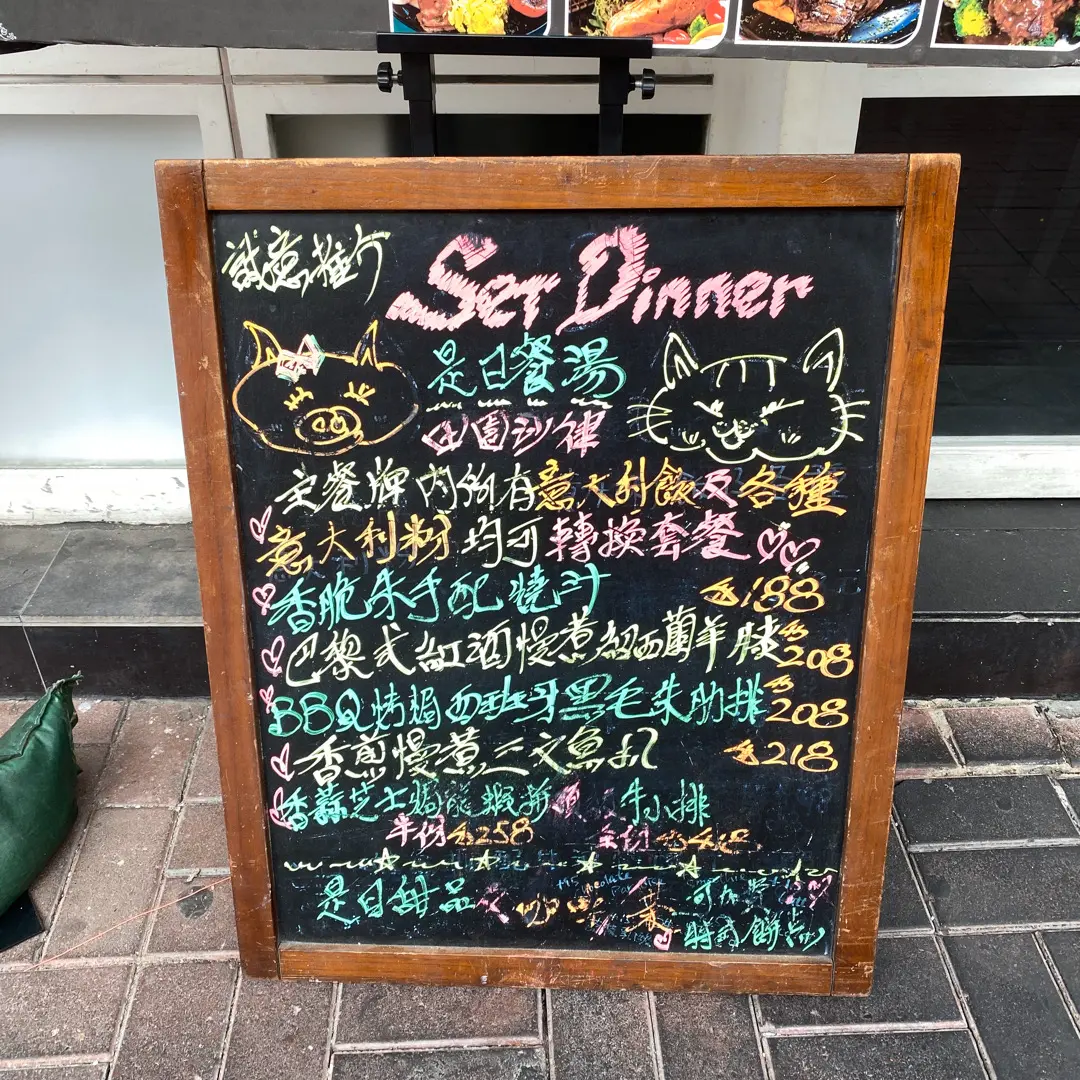 誠意推介
Ser Dinner
是日餐湯
田園沙律
主餐牌內所有意大利飯及各種
意大利粉 均可轉換套餐
香脆朱手配燒汁 $188
巴黎式紅酒慢煮紐西蘭羊膝 $208
BBQ烤焗西班牙黑毛朱肋排 $208
香煎慢煮三文魚扒 $218
香蒜芝士焗龍蝦拼 牛小排
半份 $258 全份
是日甜品 咖啡 茶
時式餅點